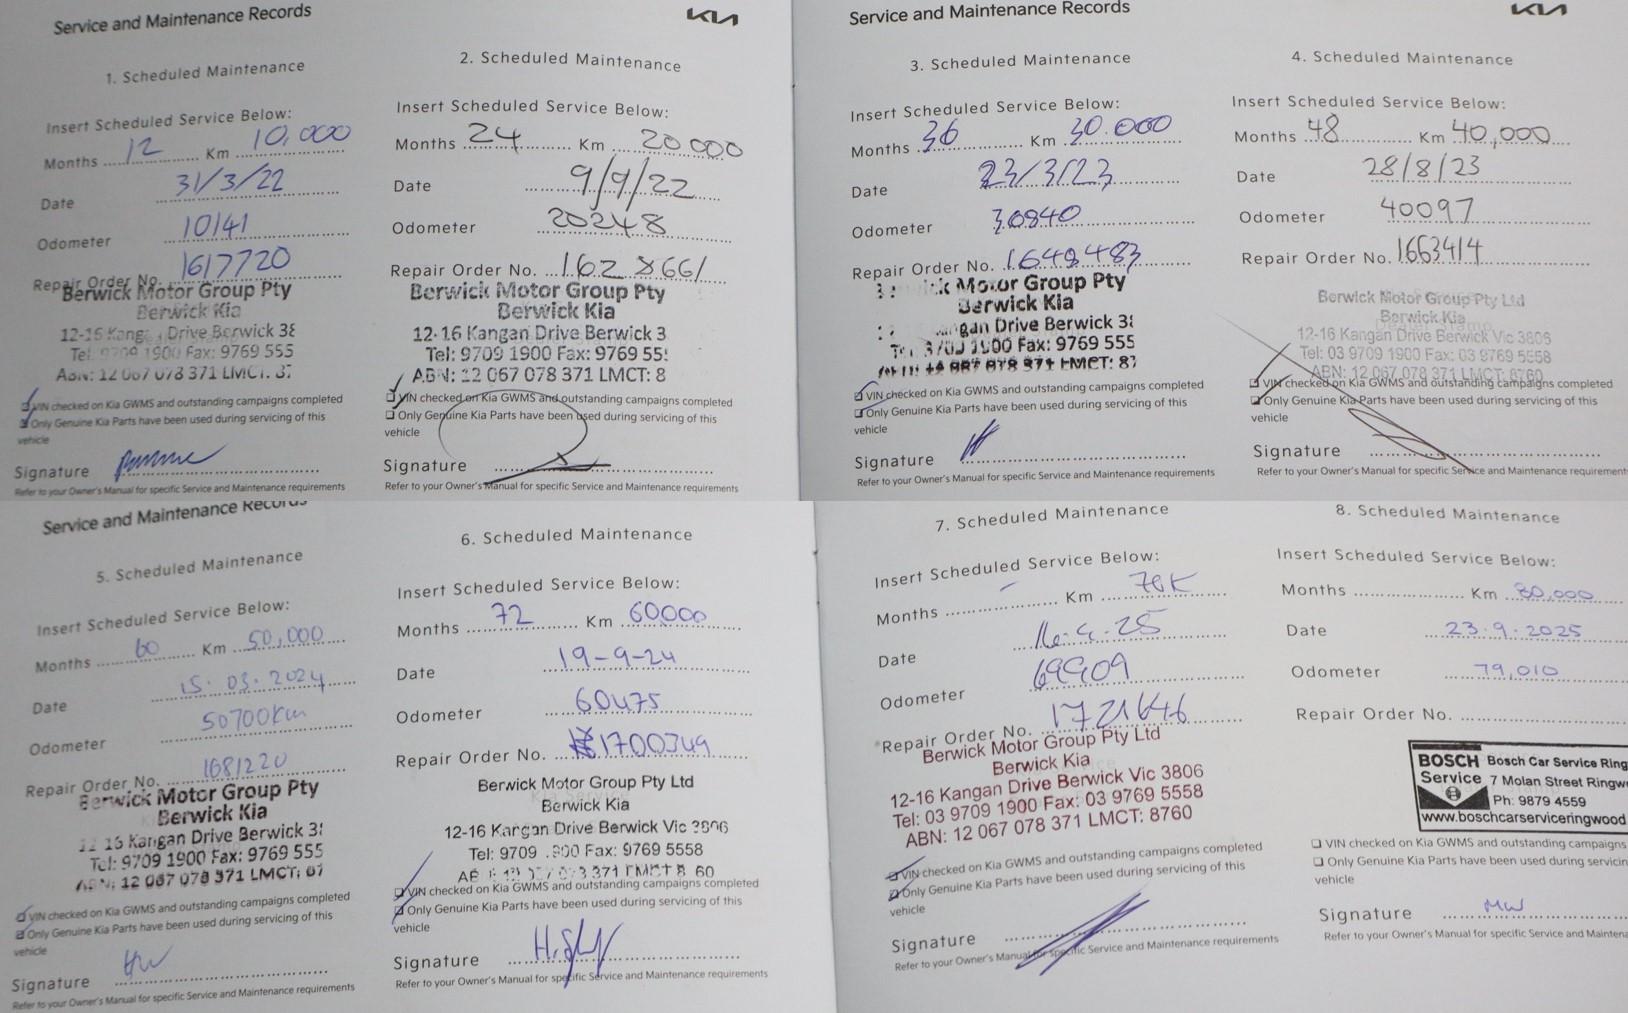 Service and Maintenance Records
KIA
1. Scheduled Maintenance
Insert Scheduled Service Below:
Months 12 Km 10,000
Date 31/3/22
Odometer 10141
Repair Order No. 1617720
Berwick Motor Group Pty
Berwick Kia
12-16 Kang Drive Berwick 38
Tel: 9709 1900 Fax: 9769 555
ABN: 12 067 078 371 LMCT: 87
VIN checked on Kia GWMS and outstanding campaigns completed
Only Genuine Kia Parts have been used during servicing of this
vehicle
Signature
Refer to your Owner's Manual for specific Service and Maintenance requirements
2. Scheduled Maintenance
Insert Scheduled Service Below:
Months 24 Km 20000
Date 9/9/22
Odometer 20248
Repair Order No. 162 8661
Berwick Motor Group Pty
Berwick Kia
12-16 Kangan Drive Berwick 3
Tel: 9709 1900 Fax: 9769 55
ABN: 12 067 078 371 LMCT: 8
VIN checked on Kia GWMS and outstanding campaigns completed
Only Genuine Kia Parts have been used during servicing of this
vehicle
Signature
Refer to your Owner's Manual for specific Service and Maintenance requirements
Service and Maintenance Records
KIA
3. Scheduled Maintenance
Insert Scheduled Service Below:
Months 36 Km 30.000
Date 23/3/23
Odometer 30840
Repair Order No. 1648483
Motor Group Pty
Berwick Kia
gan Drive Berwick 38
1900 Fax: 9769 555
067 078 371 LMCT: 87
VIN checked on Kia GWMS and outstanding campaigns completed
Only Genuine Kia Parts have been used during servicing of this
vehicle
Signature
Refer to your Owner's Manual for specific Service and Maintenance requirements
4. Scheduled Maintenance
Insert Scheduled Service Below:
Months 48 Km 40,000
Date 28/8/23
Odometer 40097
Repair Order No. 1663414
Berwick Motor Group Pty Ltd
Berwick Kia
12-16 Kangan Drive Berwick Vic 3806
Tel: 03 9709 1900 Fax: 03 9769 5558
ABN: 12 067 078 371 LMCT: 8760
VIN checked on Kia GWMS and outstanding campaigns completed
Only Genuine Kia Parts have been used during servicing of this
vehicle
Signature
Refer to your Owner's Manual for specific Service and Maintenance requirements
Service and Maintenance Records
5. Scheduled Maintenance
Insert Scheduled Service Below:
Months 60 Km 50,000
Date 15.03.2024
Odometer 50700km
Repair Order No. 1681220
Berwick Motor Group Pty
Berwick Kia
12 16 Kangan Drive Berwick 38
Tel: 9709 1900 Fax: 9769 555
ABN: 12 067 078 371 LMCT: 87
VIN checked on Kia GWMS and outstanding campaigns completed
Only Genuine Kia Parts have been used during servicing of this
vehicle
Signature
Refer to your Owner's Manual for specific Service and Maintenance requirements
6. Scheduled Maintenance
Insert Scheduled Service Below:
Months 72 Km 60000
Date 19-9-24
Odometer 60475
Repair Order No. 1700349
Berwick Motor Group Pty Ltd
Berwick Kia
12-16 Kangan Drive Berwick Vic 3806
Tel: 9709 .900 Fax: 9769 5558
371 LMCT 8 60
VIN checked on Kia GWMS and outstanding campaigns completed
Only Genuine Kia Parts have been used during servicing of this
vehicle
Signature
Refer to your Owner's Manual for specific Service and Maintenance requirements
7. Scheduled Maintenance
Insert Scheduled Service Below:
Months - Km 70K
Date 16.4.25
Odometer 69909
Repair Order No. 1721646
Berwick Motor Group Pty Ltd
Berwick Kia
12-16 Kangan Drive Berwick Vic 3806
Tel: 03 9709 1900 Fax: 03 9769 5558
ABN: 12 067 078 371 LMCT: 8760
VIN checked on Kia GWMS and outstanding campaigns completed
Only Genuine Kia Parts have been used during servicing of this
vehicle
Signature
Refer to your Owner's Manual for specific Service and Maintenance requirements
8. Scheduled Maintenance
Insert Scheduled Service Below:
Months Km 80,000
Date 23.9.2025
Odometer 79,010
Repair Order No.
BOSCH Bosch Car Service Ring
Service 7 Molan Street Ringw
Ph: 9879 4559
www.boschcarserviceringwood
VIN checked on Kia GWMS and outstanding campaigns
Only Genuine Kia Parts have been used during servicin
vehicle
Signature MW
Refer to your Owner's Manual for specific Service and Maintena